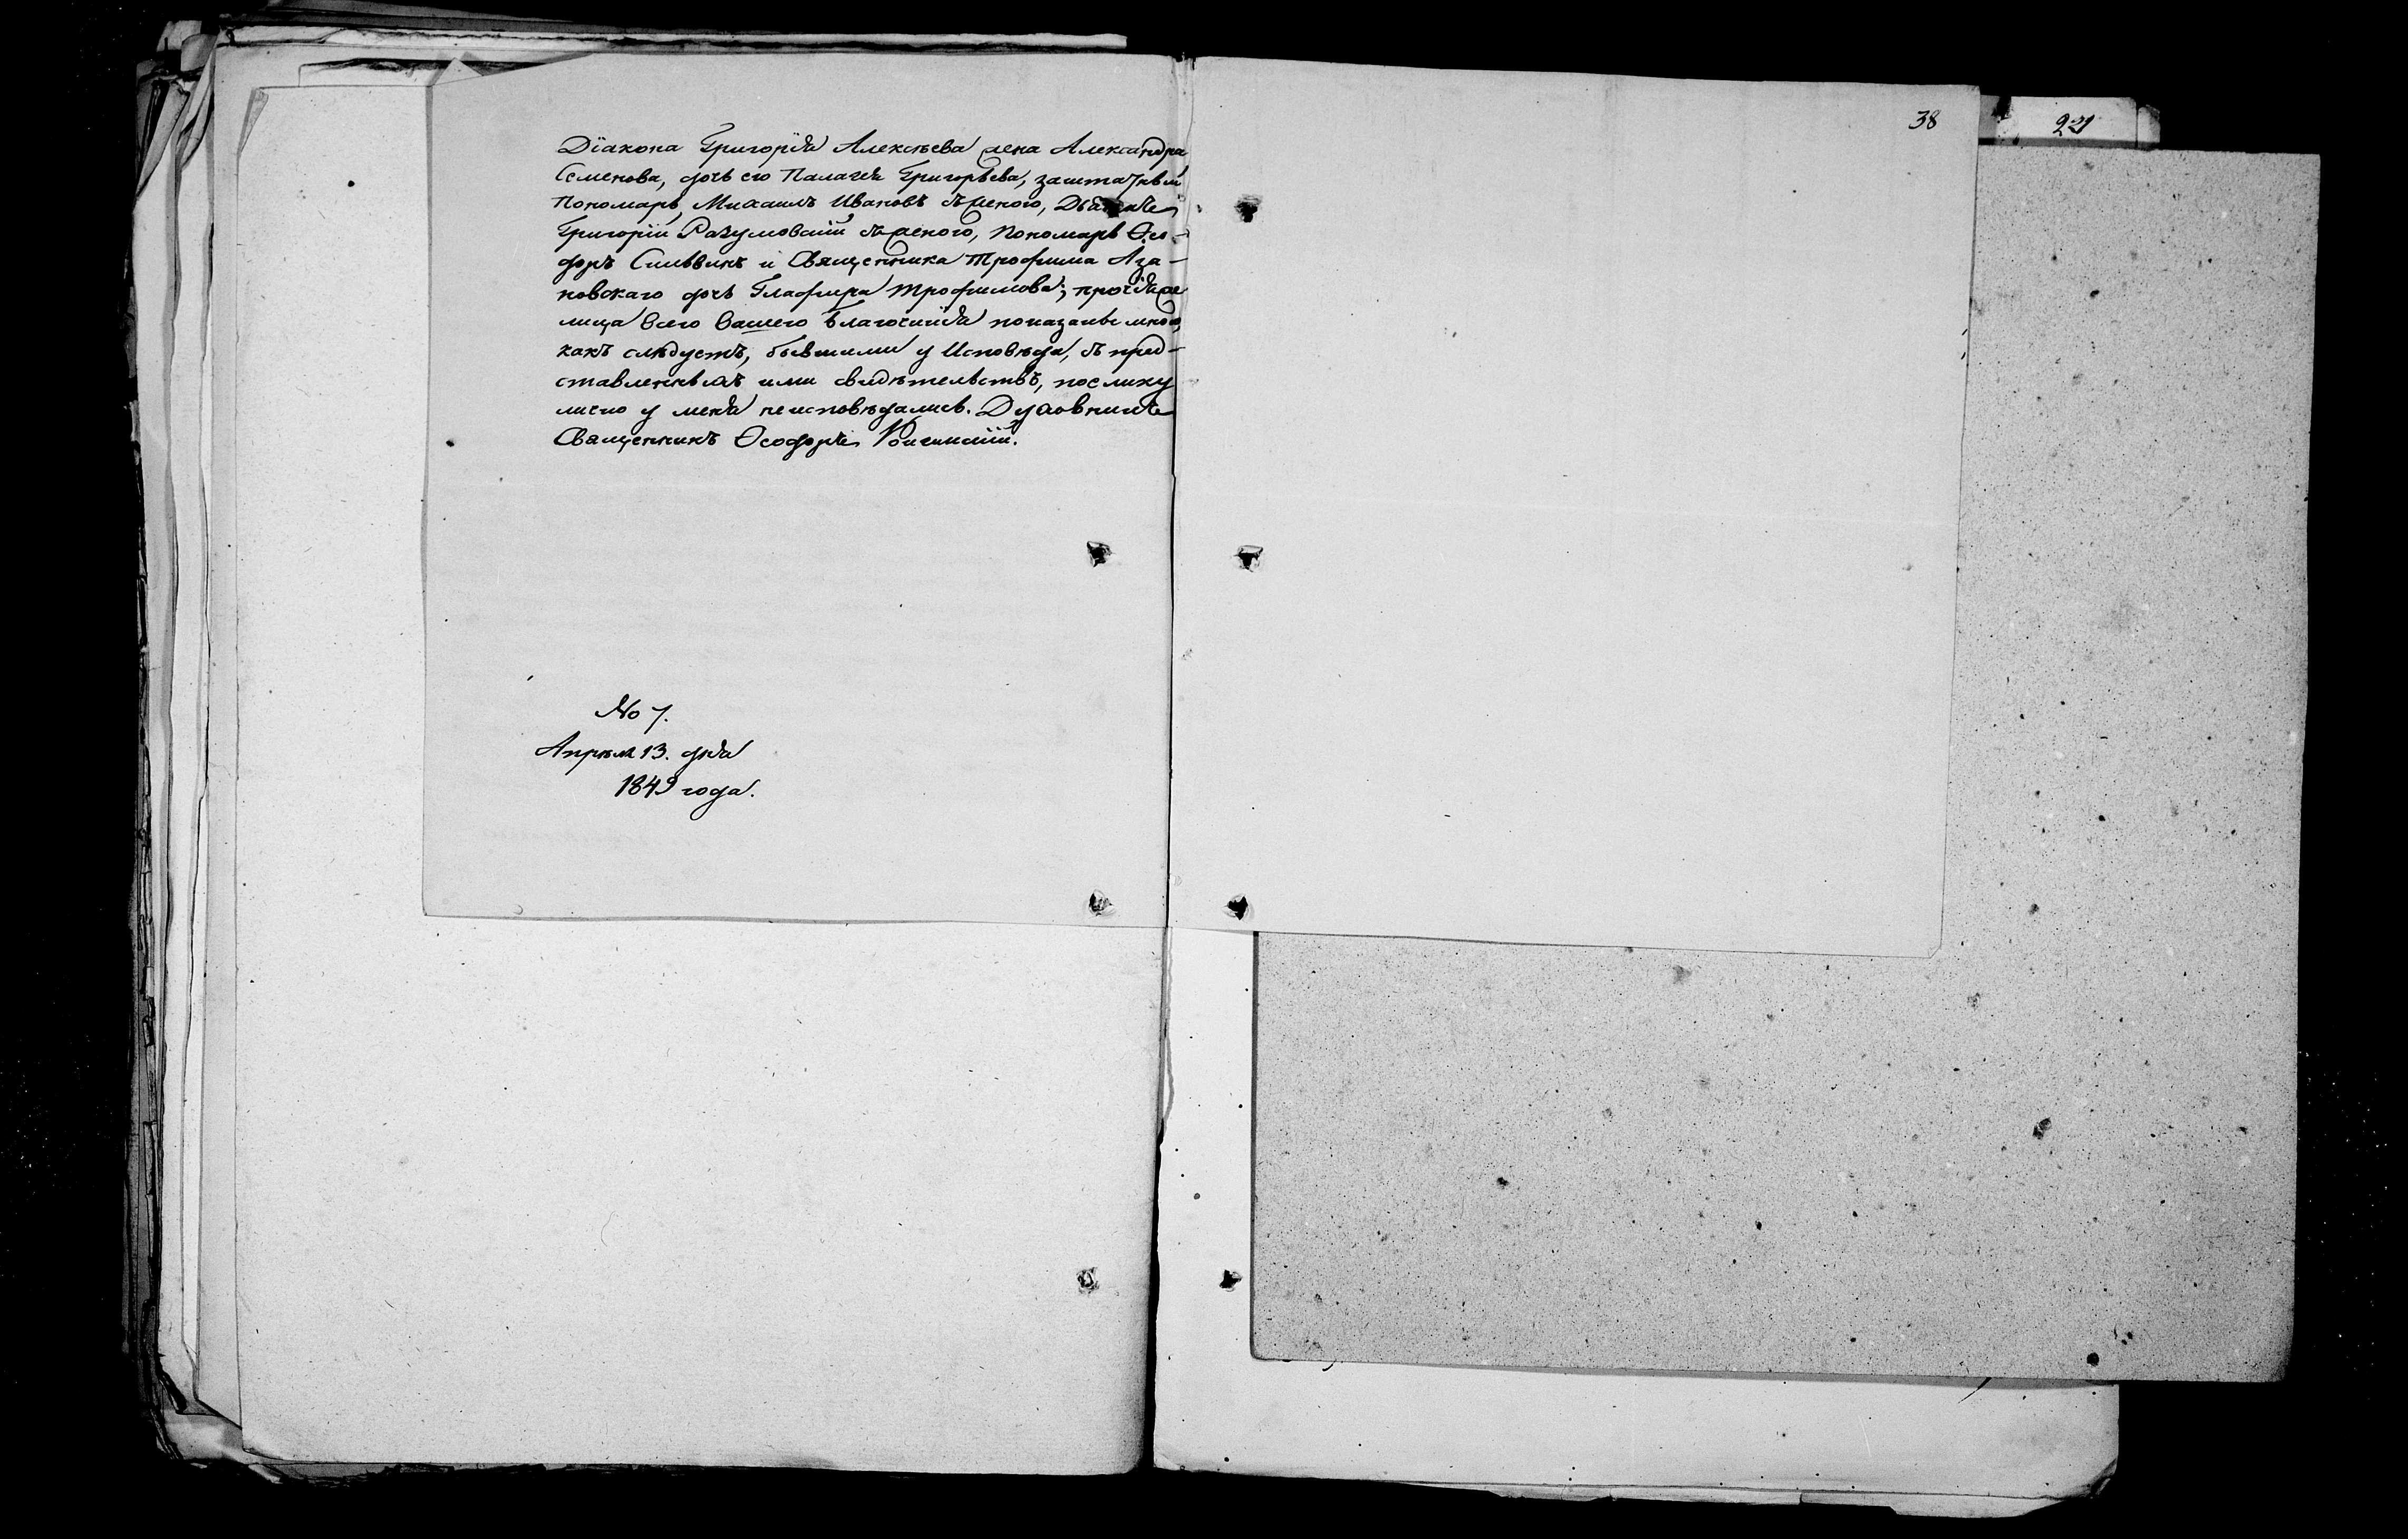 38
Діакона Григорія Алексѣева жена Александра
Семенова, дочь его Палагея Григорьева, заштатный
Пономарь, Михаилъ Ивановъ съ женою,
Григорій Разумовскій съ женою, Пономарь Ѳео-
доръ и Священника Трофима Аза-
новскаго дочь Глафира Трофимова; прочія же
лица всего вашего Благочинія показаны мною,
какъ слѣдуетъ, бывшими у Исповѣди, въ пред-
ставленныхъ ими свидѣтельствъ, послику
лично у меня неисповѣдались. Духовникъ
Священникъ Ѳеодоръ
No 7.
Апрѣля 13. дня
1849 года.